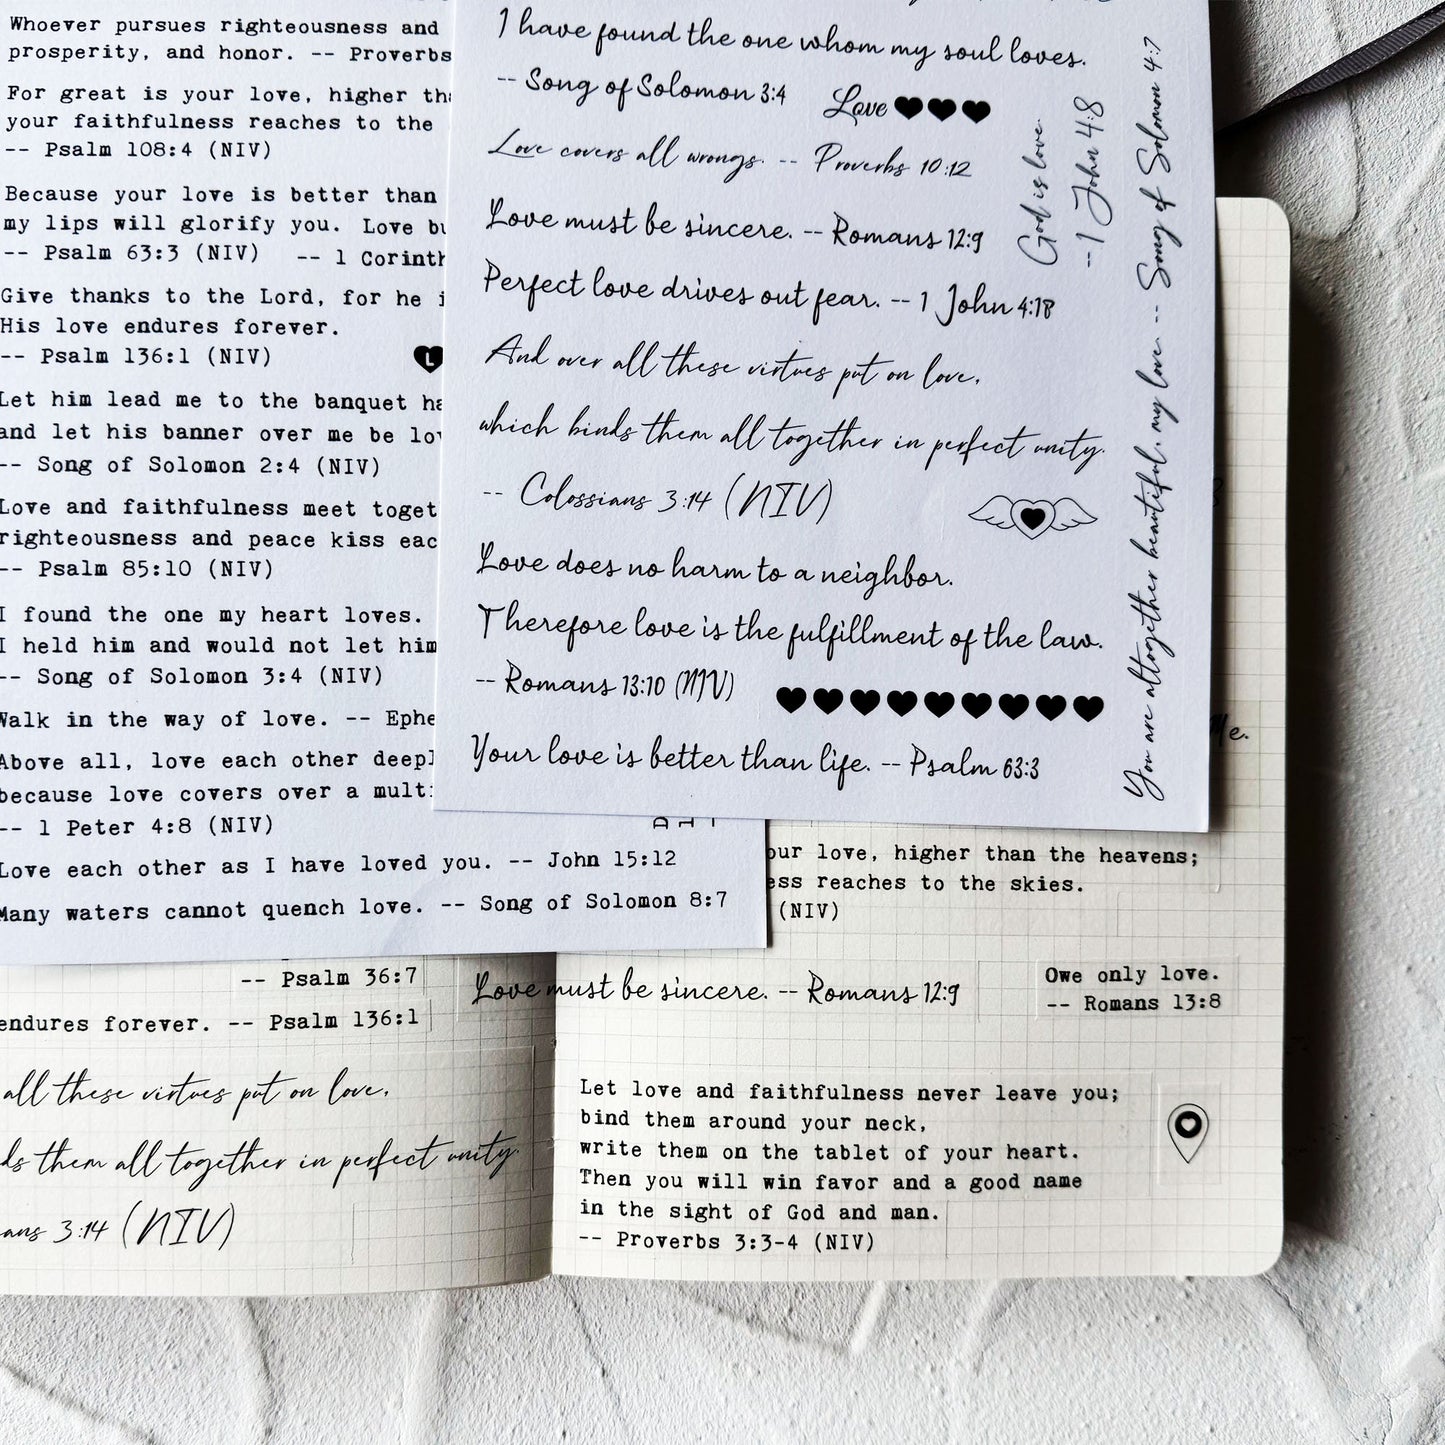 Whoever pursues righteousness and
prosperity, and honor. -- Proverbs
For great is your love, higher
your faithfulness reaches to the
-- Psalm 108:4 (NIV)
Because your love is better than
my lips will glorify you. Love
-- Psalm 63:3 (NIV) -- 1 Corinth
Give thanks to the Lord, for he
His love endures forever.
-- Psalm 136:1 (NIV)
L
Let him lead me to the banquet
and let his banner over me be
-- Song of Solomon 2:4 (NIV)
Love and faithfulness meet toget
righteousness and peace kiss eac
-- Psalm 85:10 (NIV)
I found the one my heart loves.
I held him and would not let him
-- Song of Solomon 3:4 (NIV)
Walk in the way of love. -- Ephe
Above all, love each other deepl
because love covers over a multi
-- 1 Peter 4:8 (NIV)
Love each other as I have loved you. -- John 15:12
Many waters cannot quench love. -- Song of Solomon 8:7
I have found the one whom my soul loves.
-- Song of Solomon 3:4
Love
Love covers all wrongs. -- Proverbs 10:12
Love must be sincere. -- Romans 12:9
Perfect love drives out fear. -- 1 John 4:18
And over all these virtues put on love,
which binds them all together in perfect unity.
-- Colossians 3:14 (NIV)
Love does no harm to a neighbor.
Therefore love is the fulfillment of the law.
-- Romans 13:10 (NIV)
Your love is better than life. -- Psalm 63:3
God is love.
-- 1 John 4:8
You are altogether beautiful, my love -- Song of Solomon 4:7
our love, higher than the heavens;
ess reaches to the skies.
(NIV)
-- Psalm 36:7
endures forever. -- Psalm 136:1
all these virtues put on love,
ds them all together in perfect unity.
ans 3:14 (NIV)
Love must be sincere. -- Romans 12:9
Owe only love.
-- Romans 13:8
Let love and faithfulness never leave you;
bind them around your neck,
write them on the tablet of your heart.
Then you will win favor and a good name
in the sight of God and man.
-- Proverbs 3:3-4 (NIV)